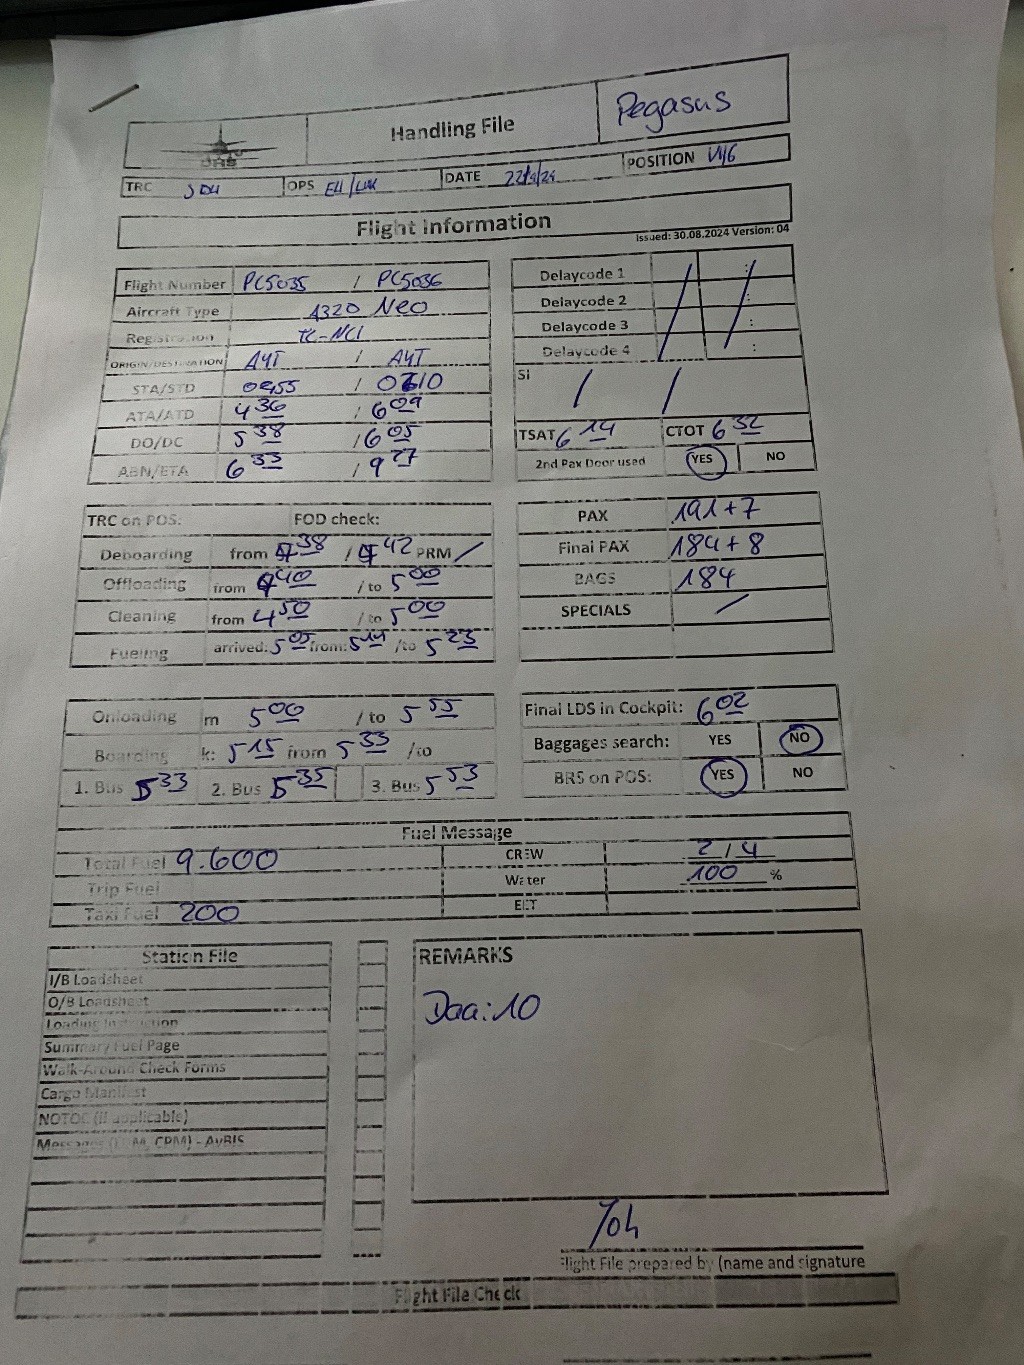 Handling File Pegasus
TRC OPS DATE POSITION
Flight Information
Issued: 30.08.2024 Version: 04
Flight Number PC5035 / PC5036
Aircraft Type A320 Neo
Registration TC-NCI
ORIGIN/DESTINATION AYT / AYT
STA/STD /
ATA/ATD 4 36 / 6 09
DO/DC 5 38 / 6 05
ABN/ETA 6 33 / 9 27
Delaycode 1 :
Delaycode 2 :
Delaycode 3 :
Delaycode 4 :
SI / /
TSAT 6 14 CTOT 6 32
2nd Pax Door used YES NO
TRC on POS: FOD check:
Deboarding from 4 38 / 4 42 PRM /
Offloading from 4 40 / to 5 00
Cleaning from 4 50 / to 5 00
Fueling arrived: 5 05 from: 5 14 / to 5 23
PAX 191+7
Final PAX 184+8
BAGS 184
SPECIALS /
Onloading m 5 00 / to 5 55
Boarding k: 5 15 from 5 33 / to
1. Bus 5 33 2. Bus 5 35 3. Bus 5 53
Final LDS in Cockpit: 6 02
Baggages search: YES NO
BRS on POS: YES NO
Fuel Message
Total Fuel 9.600 CREW 2 / 4
Trip Fuel Water 100 %
Taxi Fuel 200
Station File
I/B Loadsheet
O/B Loadsheet
Loading Instruction
Summary Fuel Page
Walk-Around Check Forms
Cargo Manifest
NOTOC (if applicable)
Messages CPM) - AvBIS
REMARKS
Daa: 10
Flight File prepared by (name and signature
Flight File Check